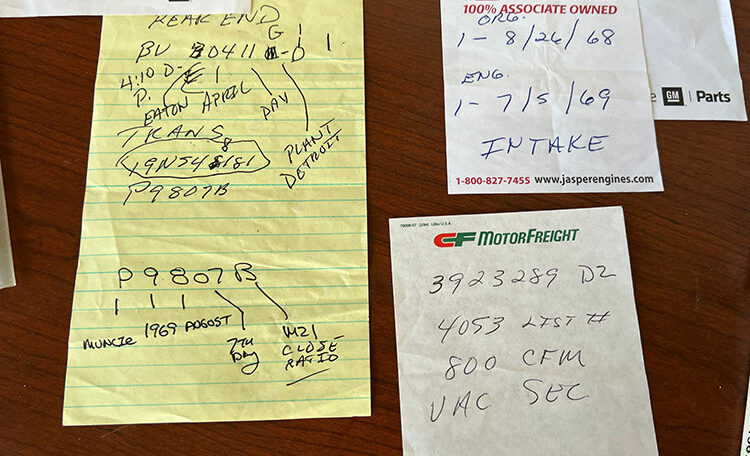 REAR END
BV 0411 G-D 1
4:10 D-E 1
P.
EATON APRIL DAY PLANT DETROIT
TRANS
19N548181
P9807B
P9807B
MUNCIE 1969 AUGUST 7TH DAY M21 CLOSE RATIO
100% ASSOCIATE OWNED
ORG.
1- 8/26/68
ENG.
1- 7/5/69
INTAKE
1-800-827-7455 www.jasperengines.com
GM | Parts
CF MOTORFREIGHT
3923289 DZ
4053 LIST #
800 CFM
VAC SEC